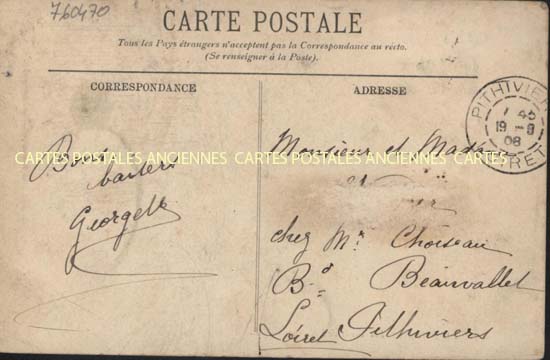 760470
CARTE POSTALE
Tous les Pays étrangers n'acceptent pas la Correspondance au recto.
(Se renseigner à la Poste).
CORRESPONDANCE
ADRESSE
PITHIVIERS
7 45
19 - 9
08
LOIRET
CARTES POSTALES ANCIENNES CARTES POSTALES ANCIENNES CARTES
Bons
baisers
Georgette
Monsieur et Madame
chez Mr Choiseau
Bd Beauvallet
Loiret Pithiviers